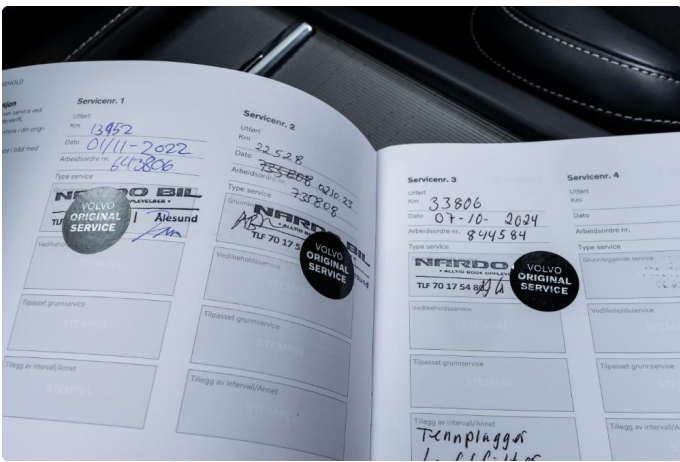 Servicenr. 1
Utført
Km 13952
Dato 01/11-2022
Arbeidsordre nr. 643806
Type service
NARDO BIL
VOLVO
ORIGINAL
SERVICE
Ålesund
Vedlikeholdsservice
Tilpasset grunnservice
STEMPEL
Tillegg av intervall/Annet
STEMPEL
Servicenr. 2
Utført
Km 22.528
Dato 0210.23
Arbeidsordre nr. 735808
Type service
NARDO BIL
TLF 70 17 5
VOLVO
ORIGINAL
SERVICE
Vedlikeholdsservice
Tilpasset grunnservice
STEMPEL
Tillegg av intervall/Annet
STEMPEL
Servicenr. 3
Utført
Km 33806
Dato 07-10-2024
Arbeidsordre nr. 844584
Type service
NARDO
• ALLTID GODE OPPLEV
TLF 70 17 54 80
VOLVO
ORIGINAL
SERVICE
Vedlikeholdsservice
STEMPEL
Tilpasset grunnservice
STEMPEL
Tillegg av intervall/Annet
Tennplugger
Luftfilter
Servicenr. 4
Utført
Km
Dato
Arbeidsordre nr.
Type service
Grunnleggende service
Vedlikeholdsservice
Tilpasset grunnservice
Tillegg av intervall/A